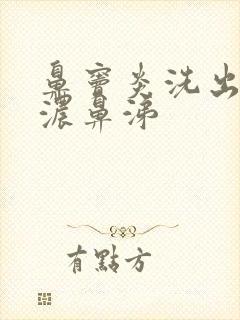 鼻竇炎洗出
濃鼻涕
有點方